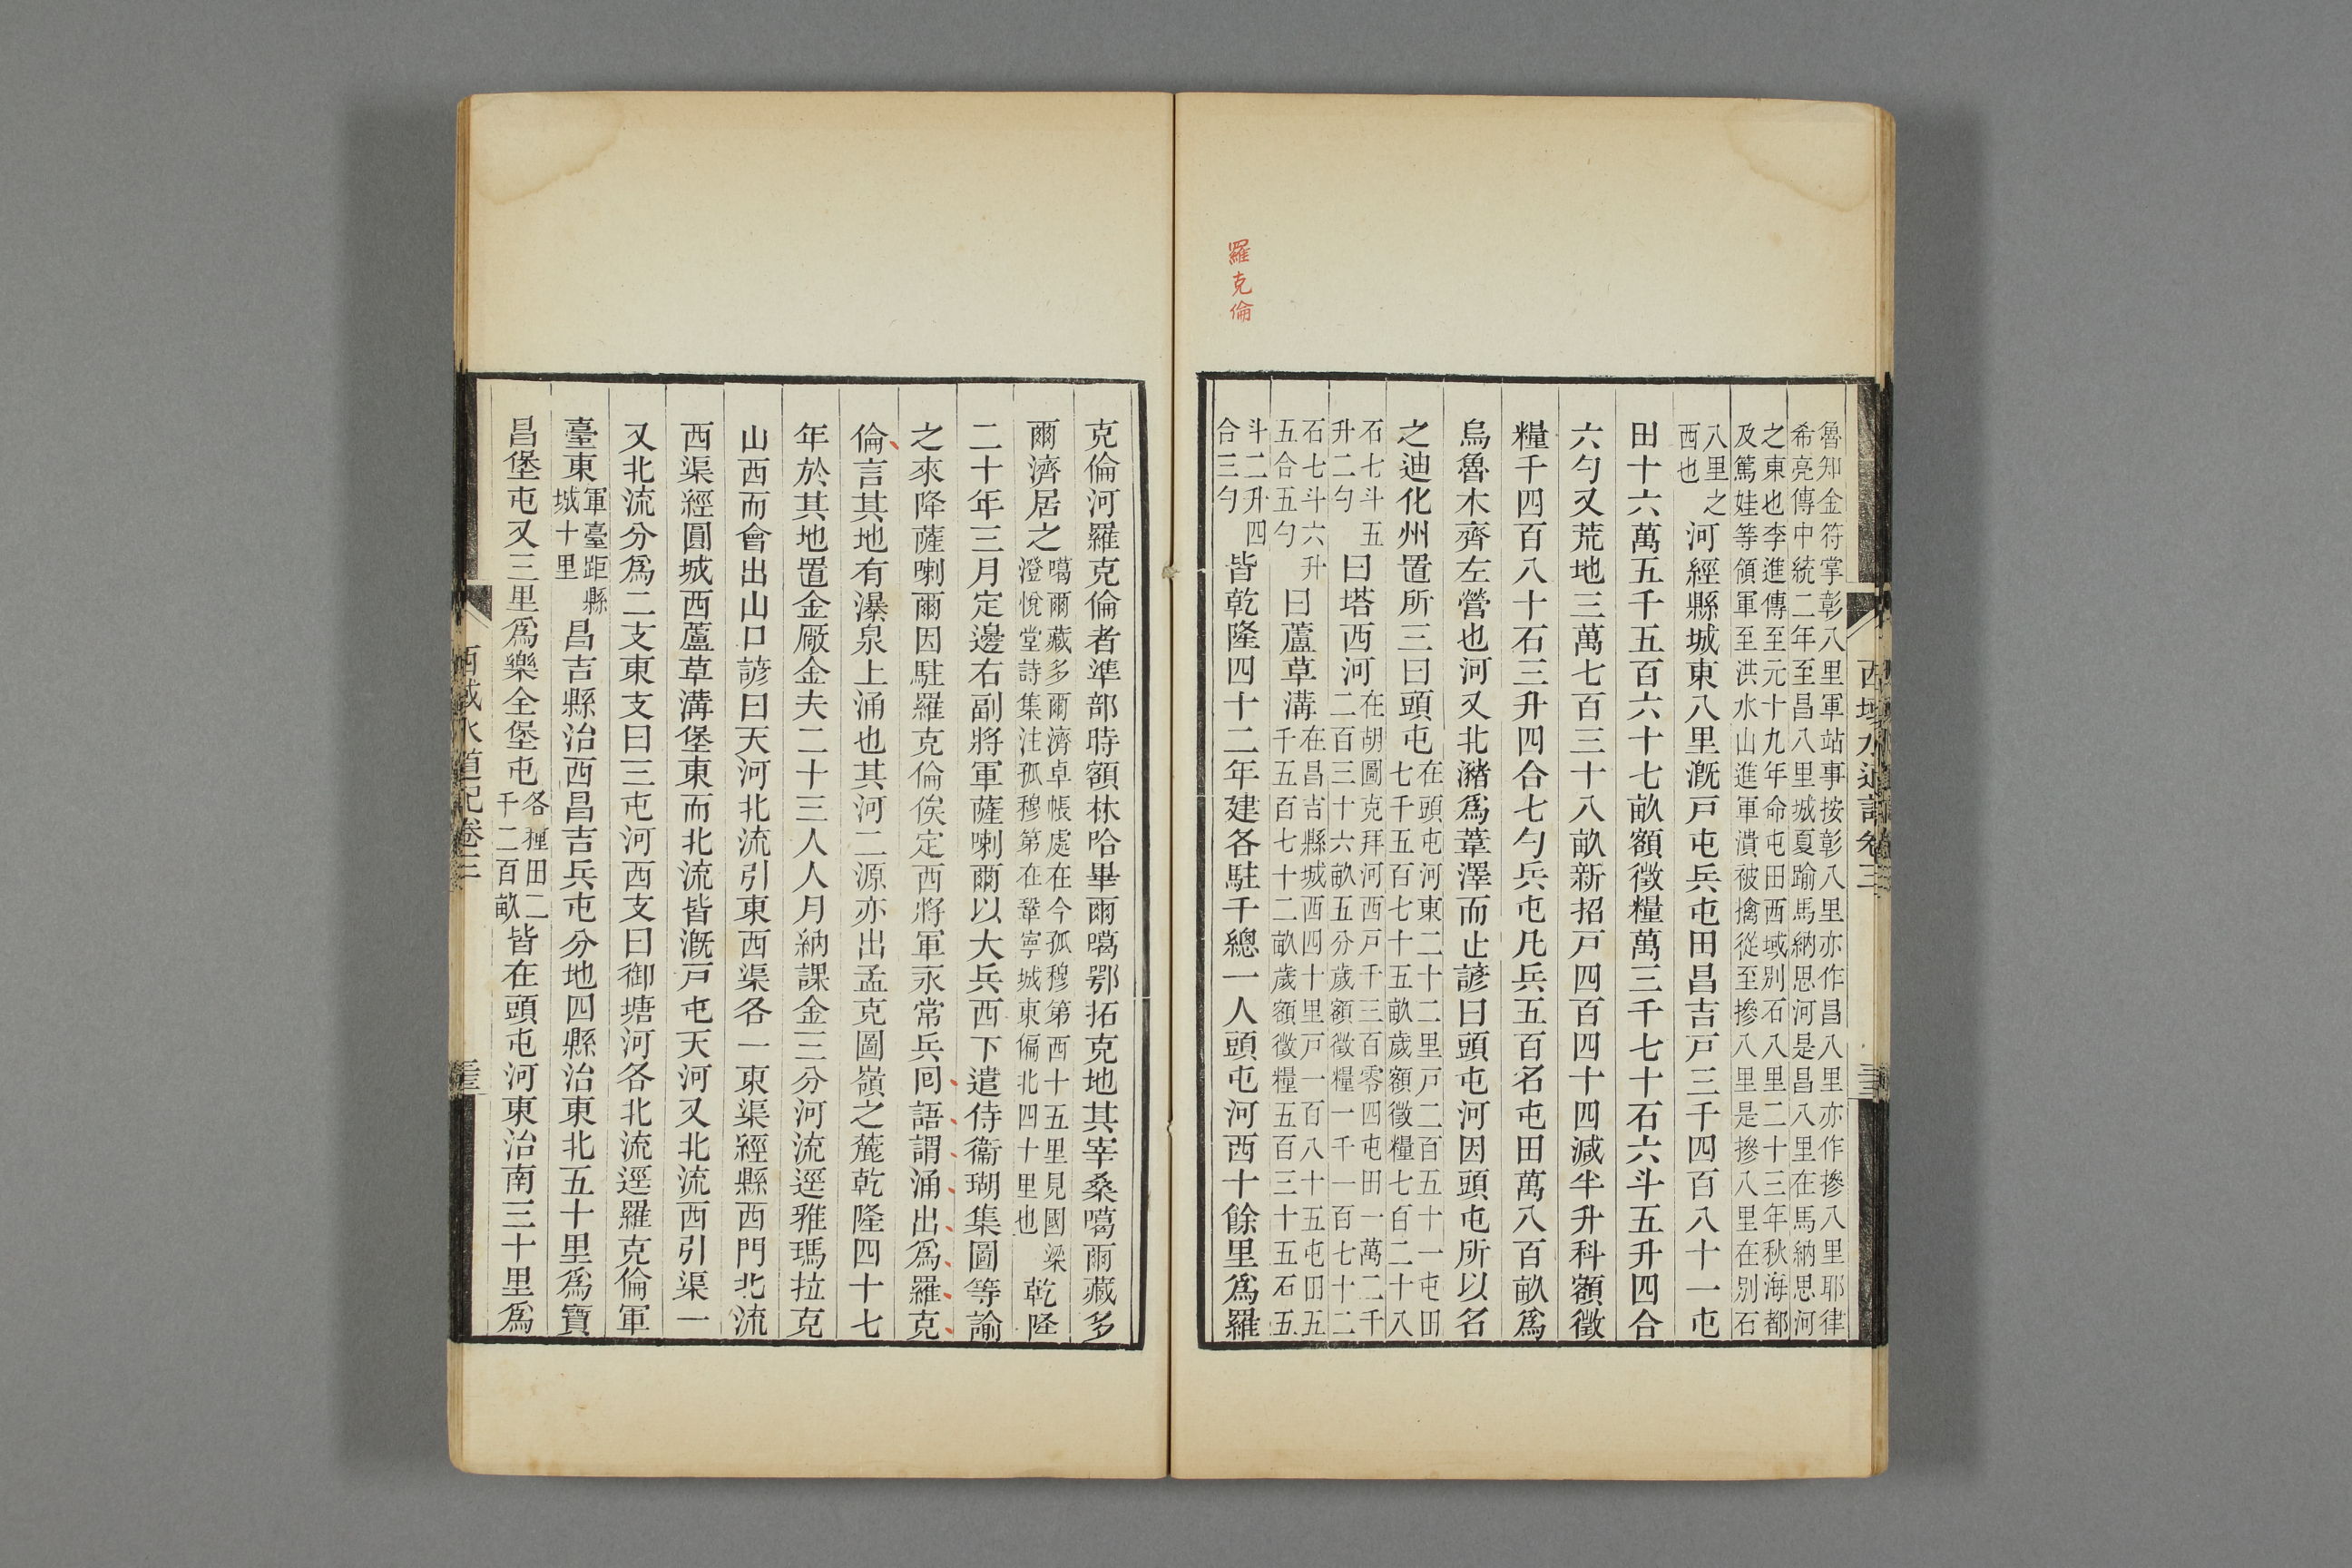 羅克倫
魯知金符掌彰八里軍站事按彰八里亦作昌八里亦作摻八里耶律
希亮傳中統二年至昌八里城夏踰馬納思河是昌八里在馬納思河
之東也李進傳至元十九年命屯田西域別石八里二十三年秋海都
及篤娃等領軍至洪水山進軍潰被擒從至摻八里是摻八里在別石
八里之
西也
河經縣城東八里溉戶屯兵屯田昌吉戶三千四百八十一屯
田十六萬五千五百六十七畝額徵糧萬三千七十石六斗五升四合
六勺又荒地三萬七百三十八畝新招戶四百四十四減半升科額徵
糧千四百八十石三升四合七勺兵屯凡兵五百名屯田萬八百畝爲
烏魯木齊左營也河又北瀦爲葦澤而止諺曰頭屯河因頭屯所以名
之迪化州置所三曰頭屯
在頭屯河東二十二里戶二百五十一屯田
七千五百七十五畝歲額徵糧七百二十八
石七斗五
升二勺
曰塔西河
在胡圖克拜河西戶千三百零四屯田一萬二千
二百三十六畝五分歲額徵糧一千一百七十二
石七斗六升
五合五勺
曰蘆草溝
在昌吉縣城西四十里戶一百八十五屯田五
千五百七十二畝歲額徵糧五百三十五石五
斗二升四
合三勺
皆乾隆四十二年建各駐千總一人頭屯河西十餘里爲羅
西域水道記卷三
克倫河羅克倫者準部時額林哈畢爾噶鄂拓克地其宰桑噶爾藏多
爾濟居之
噶爾藏多爾濟卓帳處在今孤穆第西十五里見國梁
澄悅堂詩集注孤穆第在鞏寧城東偏北四十里也
乾隆
二十年三月定邊右副將軍薩喇爾以大兵西下遣侍衞瑚集圖等諭
之來降薩喇爾因駐羅克倫俟定西將軍永常兵囘語謂涌出爲羅克
倫言其地有瀑泉上涌也其河二源亦出孟克圖嶺之麓乾隆四十七
年於其地置金廠金夫二十三人人月納課金三分河流逕雅瑪拉克
山西而會出山口諺曰天河北流引東西渠各一東渠經縣西門北流
西渠經圓城西蘆草溝堡東而北流皆溉戶屯天河又北流西引渠一
又北流分爲二支東支曰三屯河西支曰御塘河各北流逕羅克倫軍
臺東
軍臺距縣
城十里
昌吉縣治西昌吉兵屯分地四縣治東北五十里爲寶
昌堡屯又三里爲樂全堡屯
各種田二
千二百畝
皆在頭屯河東治南三十里爲
西域水道記卷三